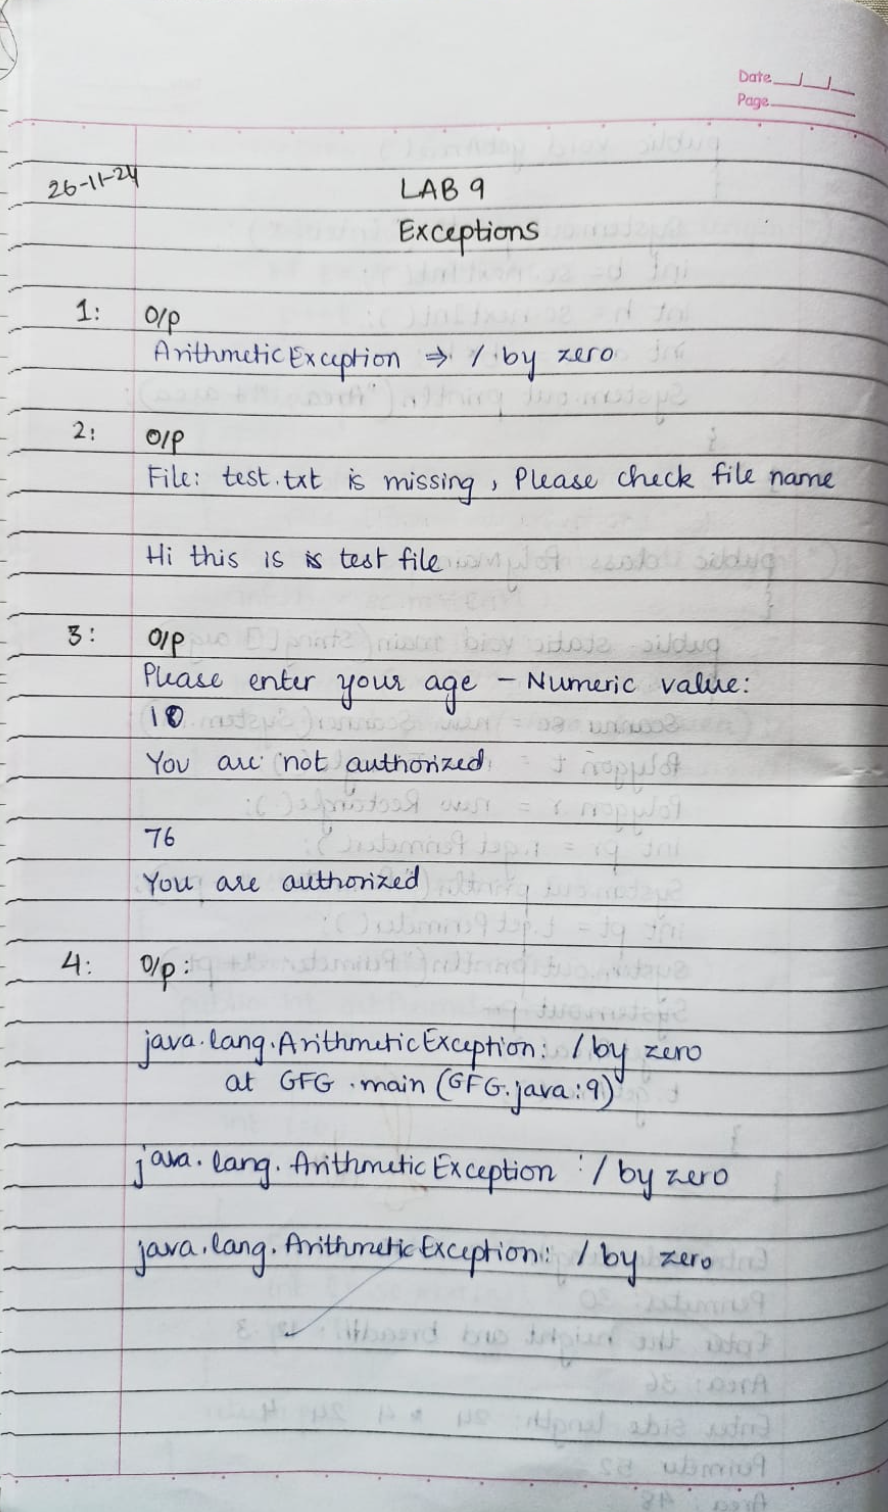 Date
Page
26-11-24
LAB 9
Exceptions
1: O/p
ArithmeticException ⇒ / by zero
2: O/p
File: test.txt is missing, Please check file name
Hi this is is test file
3: O/p
Please enter your age - Numeric value:
10
You are not authorized
76
You are authorized
4: O/p:
java.lang.ArithmeticException: / by zero
at GFG.main (GFG.java:9)
java.lang.ArithmeticException : / by zero
java.lang.ArithmeticException: / by zero